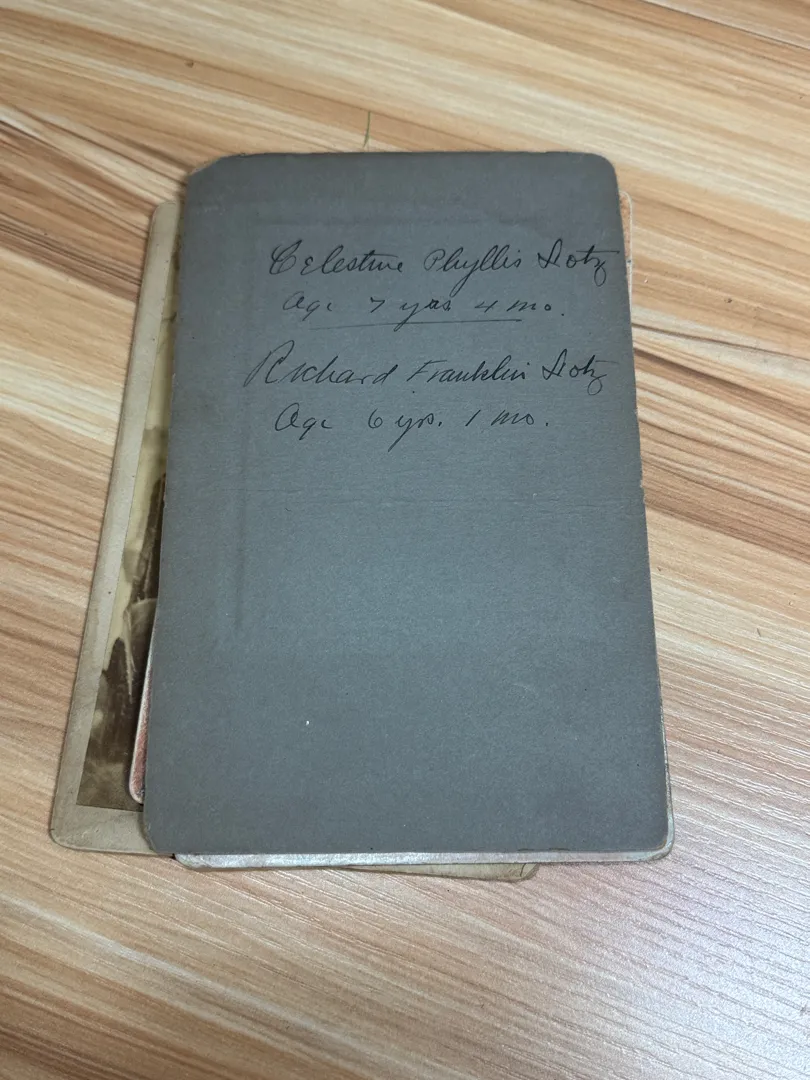 Celestine Phyllis Lotz
Age 7 yrs 4 mo.
Richard Franklin Lotz
Age 6 yrs. 1 mo.